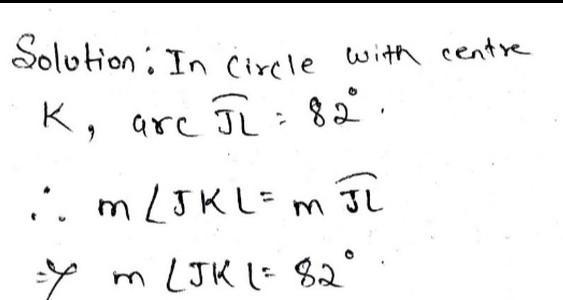 Solution: In Circle with centre
K, arc J͡L = 82°.
∴ m∠JKL = m J͡L
⇒ m∠JKL = 82°.